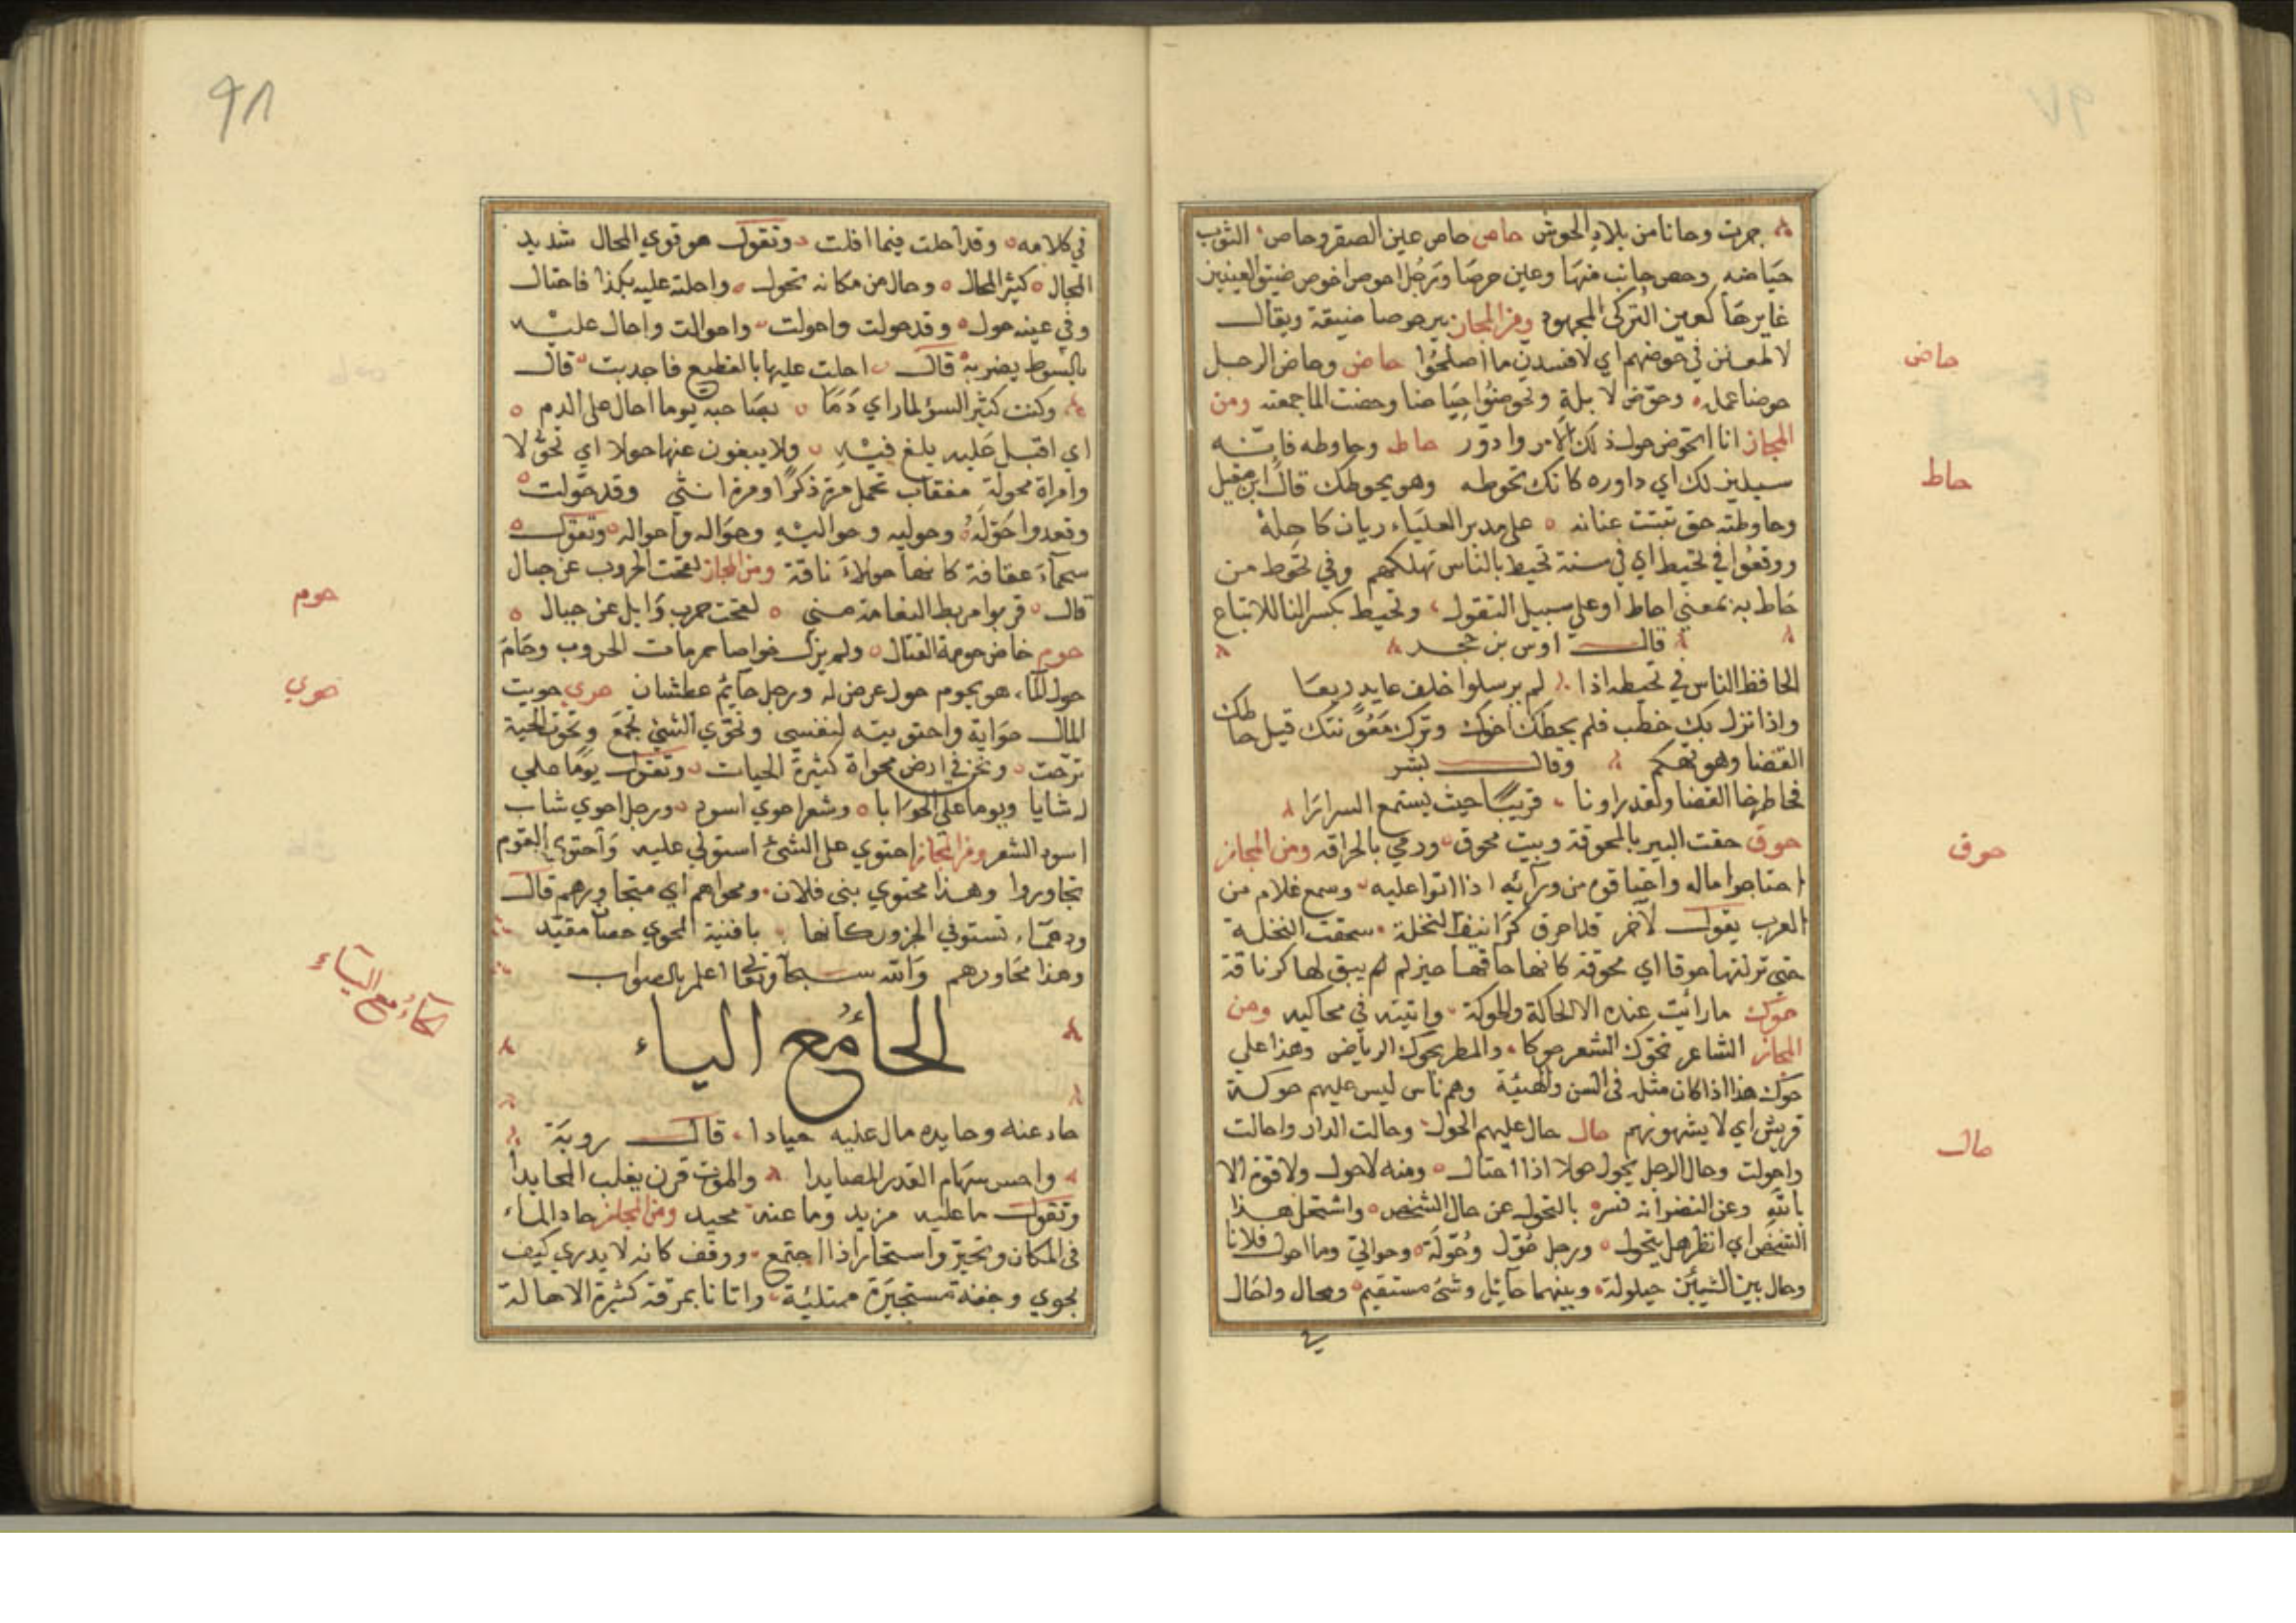 جرت وحانا من بلاد الحوش حاص حاص عين الصقر وحاص الثوب
حياضه وحص جانب منها وعين حوصا ورجل احوص اخوص ضيق العينين
غايرها كعين التركى المجهود ومن المجاز بير حوصا ضيقة ويقال
لاطعنن في حوضهم اي لافسدن ما اصلحوا حاض وحاض الرجل
حوضا عمله وحوض لابله وتحوضوا حياضا وحضت الما جمعته ومن
المجاز انا اتحوض حول ذلك الامر وادور حاط وحاوطه فانه
سيلين لك اي داوره كانك تحوطه وهو يحوطك قال ابن مقبل
وحاوطته حتى ثبتت عنانه على مدبر العلياء ريان كاهله
ووقعوا في تحيط اي في سنة تحيط بالناس تهلكهم وفي تحوط من
حاط به بمعنى احاط او على سبيل التفول وتحيط بكسر التا للاتباع
قال اوس بن حجر
الحافظ الناس في تحيط اذا لم يرسلوا خلف عايد ربعا
واذا نزل بك خطب فلم يحطك اخوك وترك معونتك قيل حاطك
القضا وهو تهكم وقال بشر
فحاطونا القضا ولقد راونا قريبا حيث يستمع السرارا
حوق حقت البير بالمحوقة وبيت محوق ورمي بالحراقه ومن المجاز
احتاجوا ماله واحتاقوه من ورآئه اذا اتوا عليه وسمع غلام من
العرب يقول لاخر قدا حرق كرانيف النخلة سحقت النخلة
حتى تركتها حوقا اي محوقة كانها حاقها حين لم يبق لها كرنافة
حوك مارايت عنده الا الحاكة والحوكة واتيته في محاكيه ومن
المجاز الشاعر يحوك الشعر حوكا والمطر يحوك الرياض وهذا على
حوك هذا اذا كان مثله في السن والهيئة وهم ناس ليس عليهم حوكة
قريش اي لا يشبهونهم حال حال عليهم الحول وحالت الدار واحالت
واحولت وحال الرجل يحول حولا اذا احتال ومنه لا حول ولا قوة الا
بالله وعن النضر انه فسره بالتحول عن حال الشخص واشتحل هذا
الشخص اي انظر هل يتحول ورجل حول وحولة وحوالي وما احول فلانا
وحال بين الشيئين حيلولة وبينهما حآيل وشئ مستقيم ومحال واحال
في
حاض
حاط
حوق
حال
٩٨
في كلامه وقد احلت فيما افلت وتقول هو قوي المحال شديد
المحال كثير المحال وحال من مكانه تحول واحلته عليه بكذا فاحتال
وفي عينه حول وقد حولت واحولت واحوالت واحال عليه
بالسوط يضربه قال احلت عليها بالقطيع فاجدبت قال
وكنت كذئب السوء لما راى دما بصاحبه يوما احال على الدم
اي اقبل عليه يلغ فيه ولا يبغون عنها حولا اي تحولا
وامراة محولة معقاب تحمل مرة ذكرا ومرة انثى وقد حولت
وقعدوا حوله وحوليه وحواليه وحواله واحواله وتقول
سمآء عقاقة كانها حولاء ناقة ومن المجاز لقحت الحروب عن حبال
قال قربوا مربط النعامة مني لقحت حرب وايل عن حيال
حوم خاض حومة القتال ولم يزل خواصا حومات الحروب وحام
حول الما هو يحوم حول غرض له ورجل حآيم عطشان حوي حويت
المال حواية واحتويته لنفسي وتحوي الشئ تجمع وتحوت الحية
ترحت ونحن في ارض محواة كثيرة الحيات وتقول يوما على
رشايا ويوما على الحوايا وشعر احوي اسود ورجل احوي شاب
اسود الشعر ومن المجاز احتوي على الشئ استولي عليه واحتوى القوم
تجاوروا وهذا محتوي بني فلان ومحواهم اي متجاورهم قال
ودهمآء تستوفي الجزور كانها بافنية المحوي حصان مقيد
وهذا تحاورهم والله سبحانه وتعالى اعلم بالصواب
الحا مع الياء
حاد عنه وحايده مال عليه حيادا قال روبة
واحس سهام القدر المصايدا والموت قرن يغلب المحايدا
وتقول ما عليه مزيد وما عنه محيد ومن المجاز حاد الماء
في المكان وتحير واستحار اذا اجتمع ووقف كانه لا يدري كيف
يجري وجفنة مستحيرة ممتلئة واتانا بمرقة كثيرة الاحالة
حوم
حوي
الحآء مع اليآء